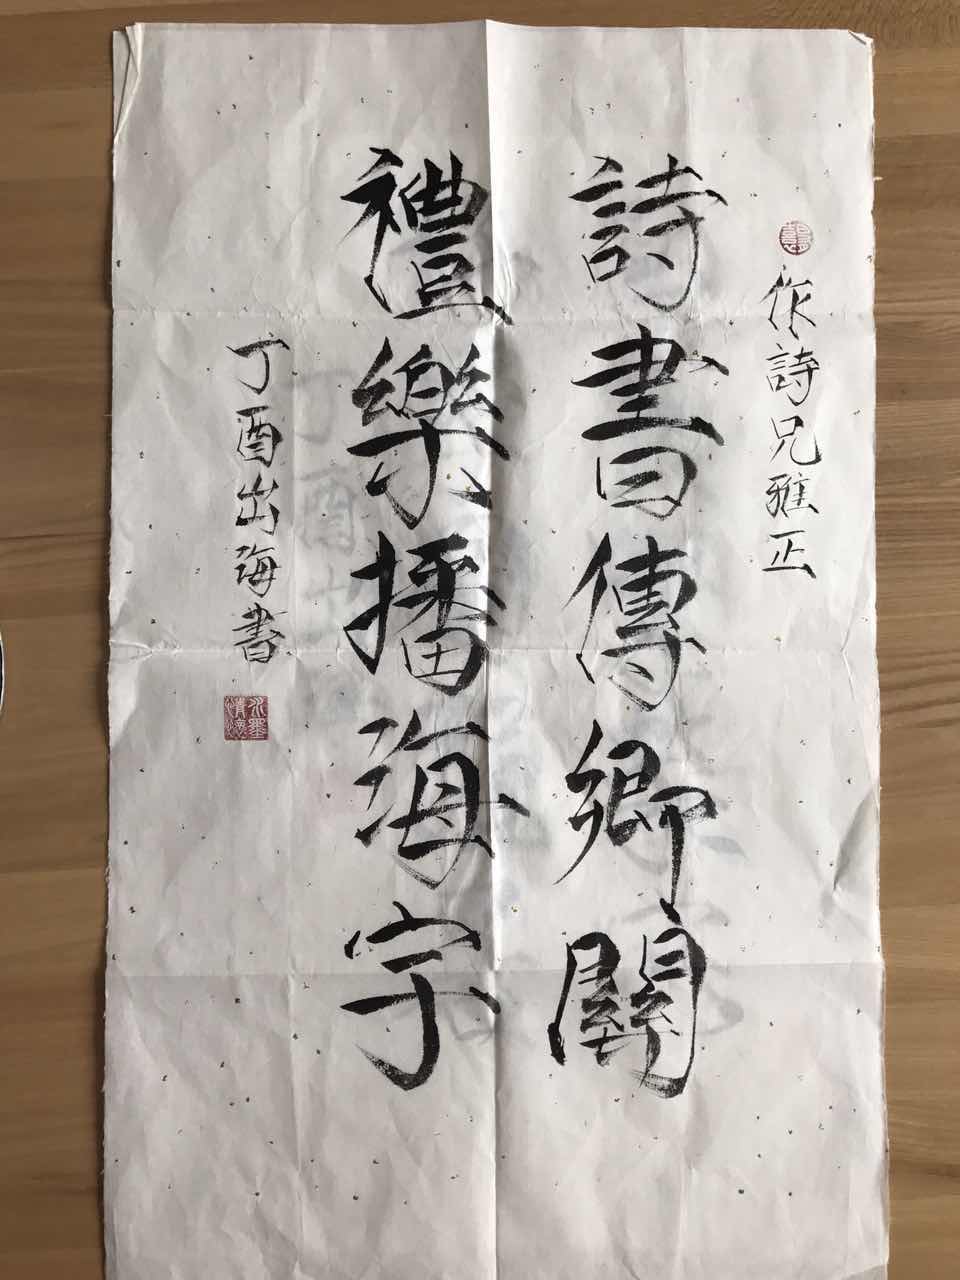 作詩兄雅正
詩書傳鄉關
禮樂播海宇
丁酉出海書
水墨情懷